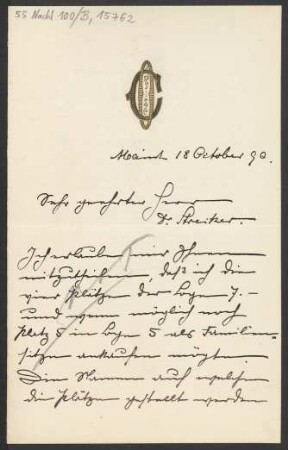 55 Nachl 100/B, 15762
Mainz 18 October 90.
Sehr geehrter Herr
Dr. Strecker.
Ich erlaube mir Ihnen
mitzutheilen, daß ich die
vier Plätze der Loge 7.–
und wenn möglich noch
Platz 5 in Loge 5 als Familien-
sitzen ankaufen mögte.
Die Namen auf welchen
die Plätze gestellt werden